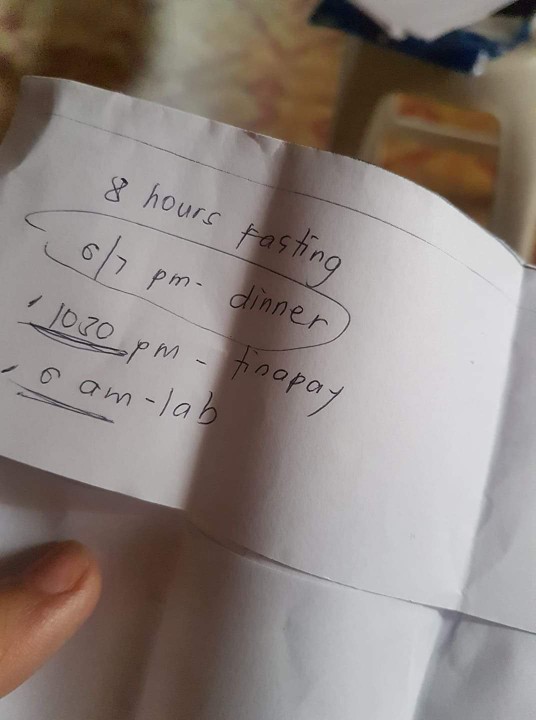 8 hours fasting
6/7 pm - dinner
1030 pm - tinapay
6 am - lab